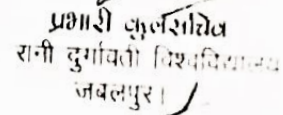 प्रभारी कुलसचिव
रानी दुर्गावती विश्वविद्यालय
जबलपुर।